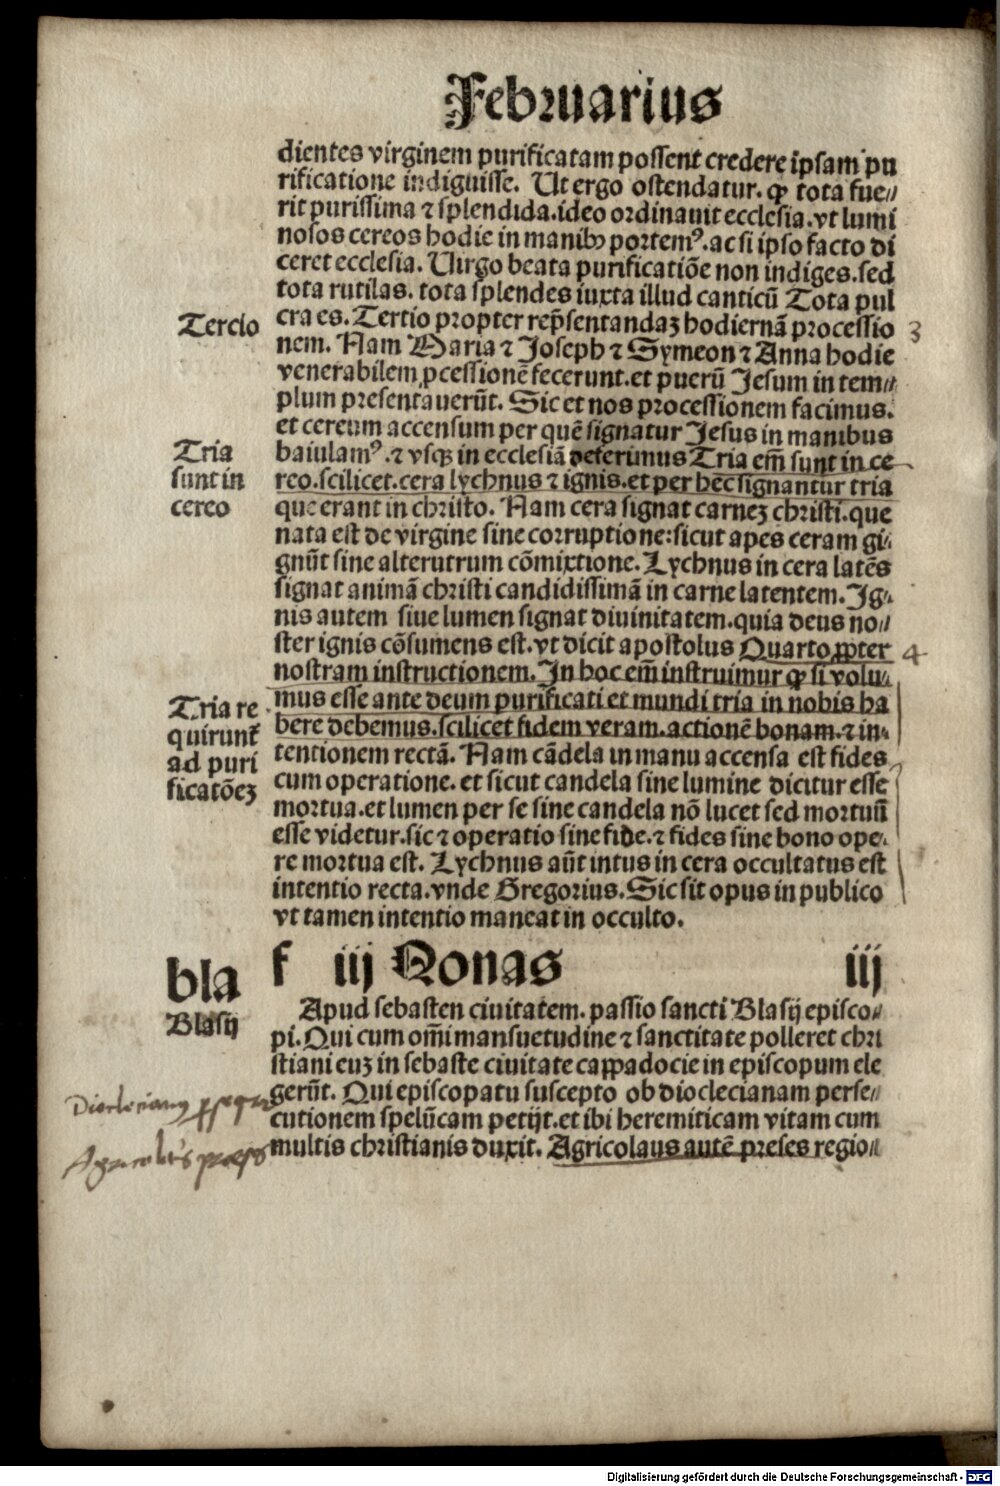 Februarius
dientes virginem purificatam possent credere ipsam pu
rificatione indiguisse. Ut ergo ostendatur. ꝙ tota fue⸗
rit purissima ⁊ splendida.ideo ordinauit ecclesia.vt lumi
nosos cereos hodie in manibꝰ portemꝰ.ac si ipso facto di
ceret ecclesia. Uirgo beata purificatiōe non indiges.sed
tota rutilas. tota splendes iuxta illud canticū Tota pul
cra es. Tertio propter rep̄sentandaꝫ hodiernā processio
Tercio
3
nem. Nam Maria ⁊ Joseph ⁊ Symeon ⁊ Anna hodie
venerabilem ꝓcessionē fecerunt.et puerū Jesum in tem⸗
plum presentauerūt. Sic et nos processionem facimus.
et cereum accensum per quē signatur Jesus in manibus
baiulamꝰ.⁊ vsqꝫ in ecclesiā deferimus Tria em̄ sunt in ce
reo.scilicet.cera lychnus ⁊ ignis.et per hec̄ signantur tria
Tria
sunt in
cereo
que erant in christo. Nam cera signat carneꝫ christi.que
nata est de virgine sine corruptione:sicut apes ceram gi⸗
gnūt sine alterutrum cōmixtione. Lychnus in cera latēs
signat animā christi candidissimā in carne latentem. Ig⸗
nis autem siue lumen signat diuinitatem.quia deus no⸗
ster ignis cōsumens est.vt dicit apostolus Quarto ꝓpter
4
nostram instructionem. In hoc em̄ instruimur ꝙ si volu⸗
mus esse ante deum purificati et mundi tria in nobis ha
bere debemus.scilicet fidem veram.actionē bonam.⁊ in⸗
Tria re
quirunt᷑
ad puri
ficatōeꝫ
tentionem rectā. Nam cādela in manu accensa est fides
cum operatione. et sicut candela sine lumine dicitur esse
mortua.et lumen per se sine candela nō lucet sed mortuū
esse videtur.sic ⁊ operatio sine fide.⁊ fides sine bono ope⸗
re mortua est. Lychnus aūt intus in cera occultatus est
intentio recta.vnde Gregorius. Sic sit opus in publico
vt tamen intentio maneat in occulto.
bla
f iij Nonas iij
Blasij
Apud sebasten ciuitatem. passio sancti Blasij episco⸗
pi. Qui cum om̄i mansuetudine ⁊ sanctitate polleret chri
stiani euꝫ in sebaste ciuitate cappadocie in episcopum ele
gerūt. Qui episcopatu suscepto ob dioclecianam perse⸗
cutionem spelūcam petijt.et ibi heremiticam vitam cum
multis christianis duxit. Agricolaus autē preses regio⸗